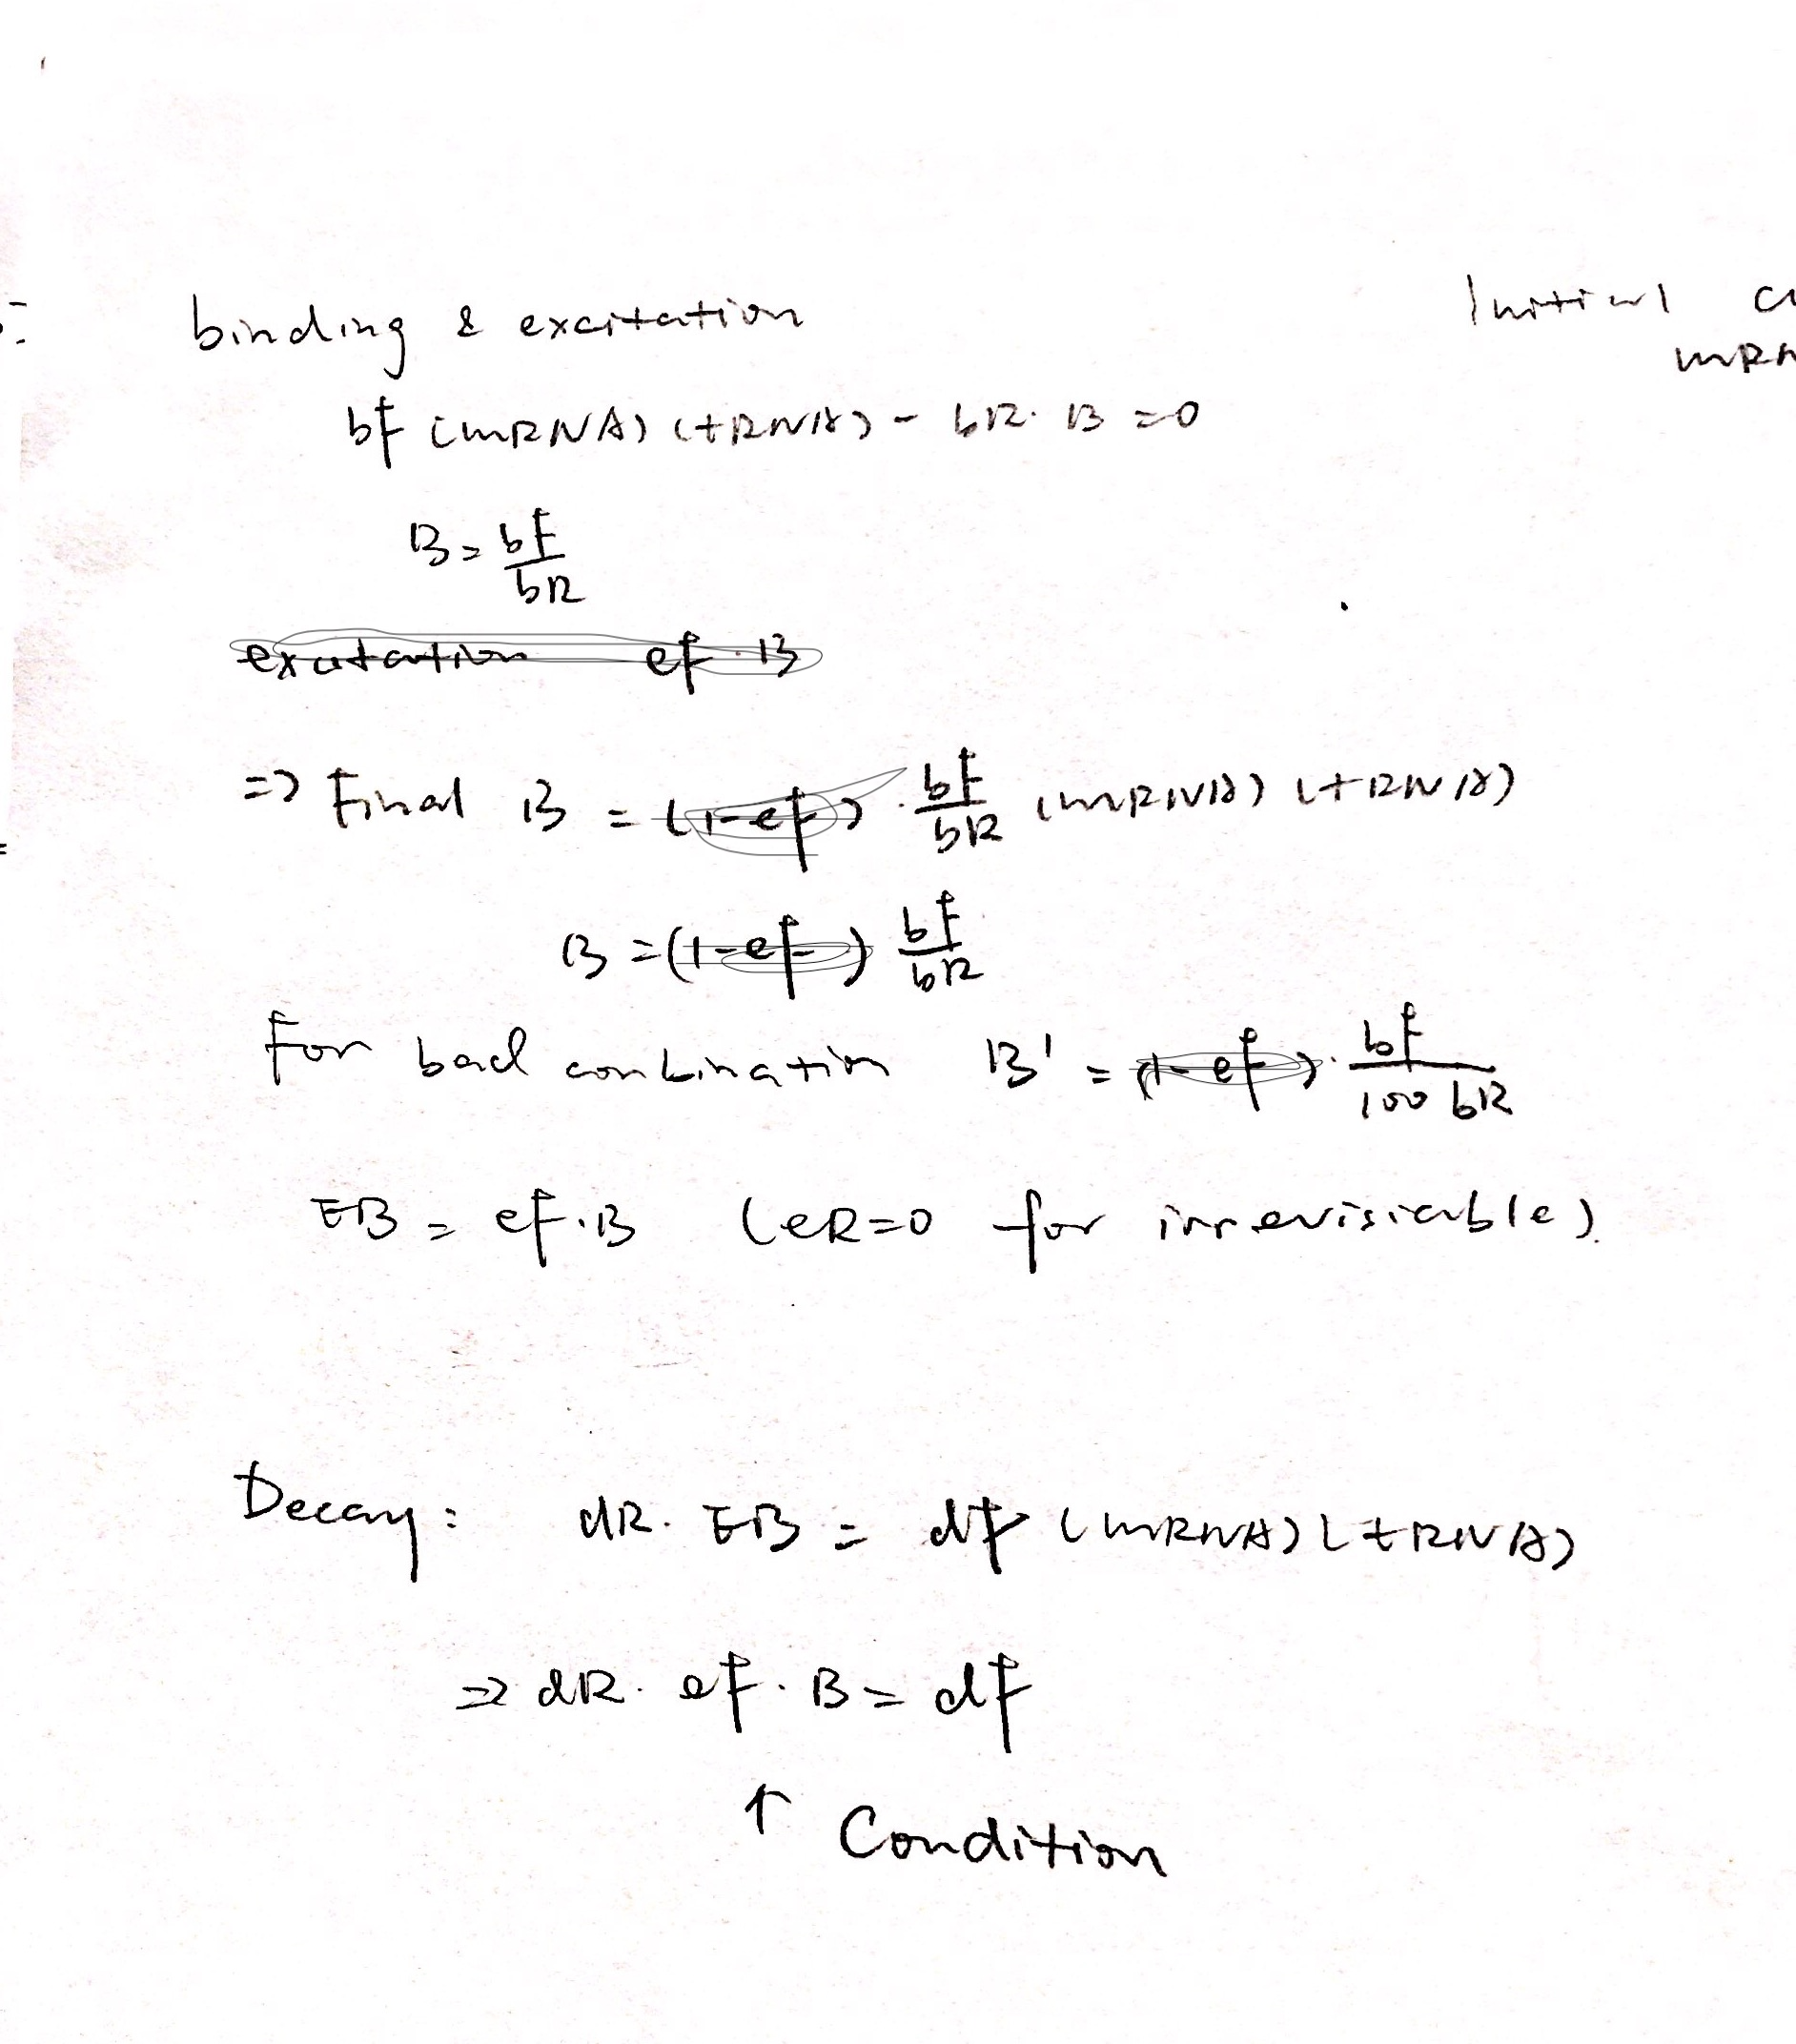 binding & excitation
Initial
bf (mRNA) (tRNA) - bR. B = 0
B = bf/bR
excitation ef. B
=> Final B = (1-ef) . bf/bR (mRNA) (tRNA)
B = (1-ef) bf/bR
For bad conbination B' = (1-ef) . bf/100 bR
EB = ef. B (eR=0 for irrevisiable).
Decay: dR. EB = df (mRNA) (tRNA)
=> dR. ef. B = df
↑ Condition